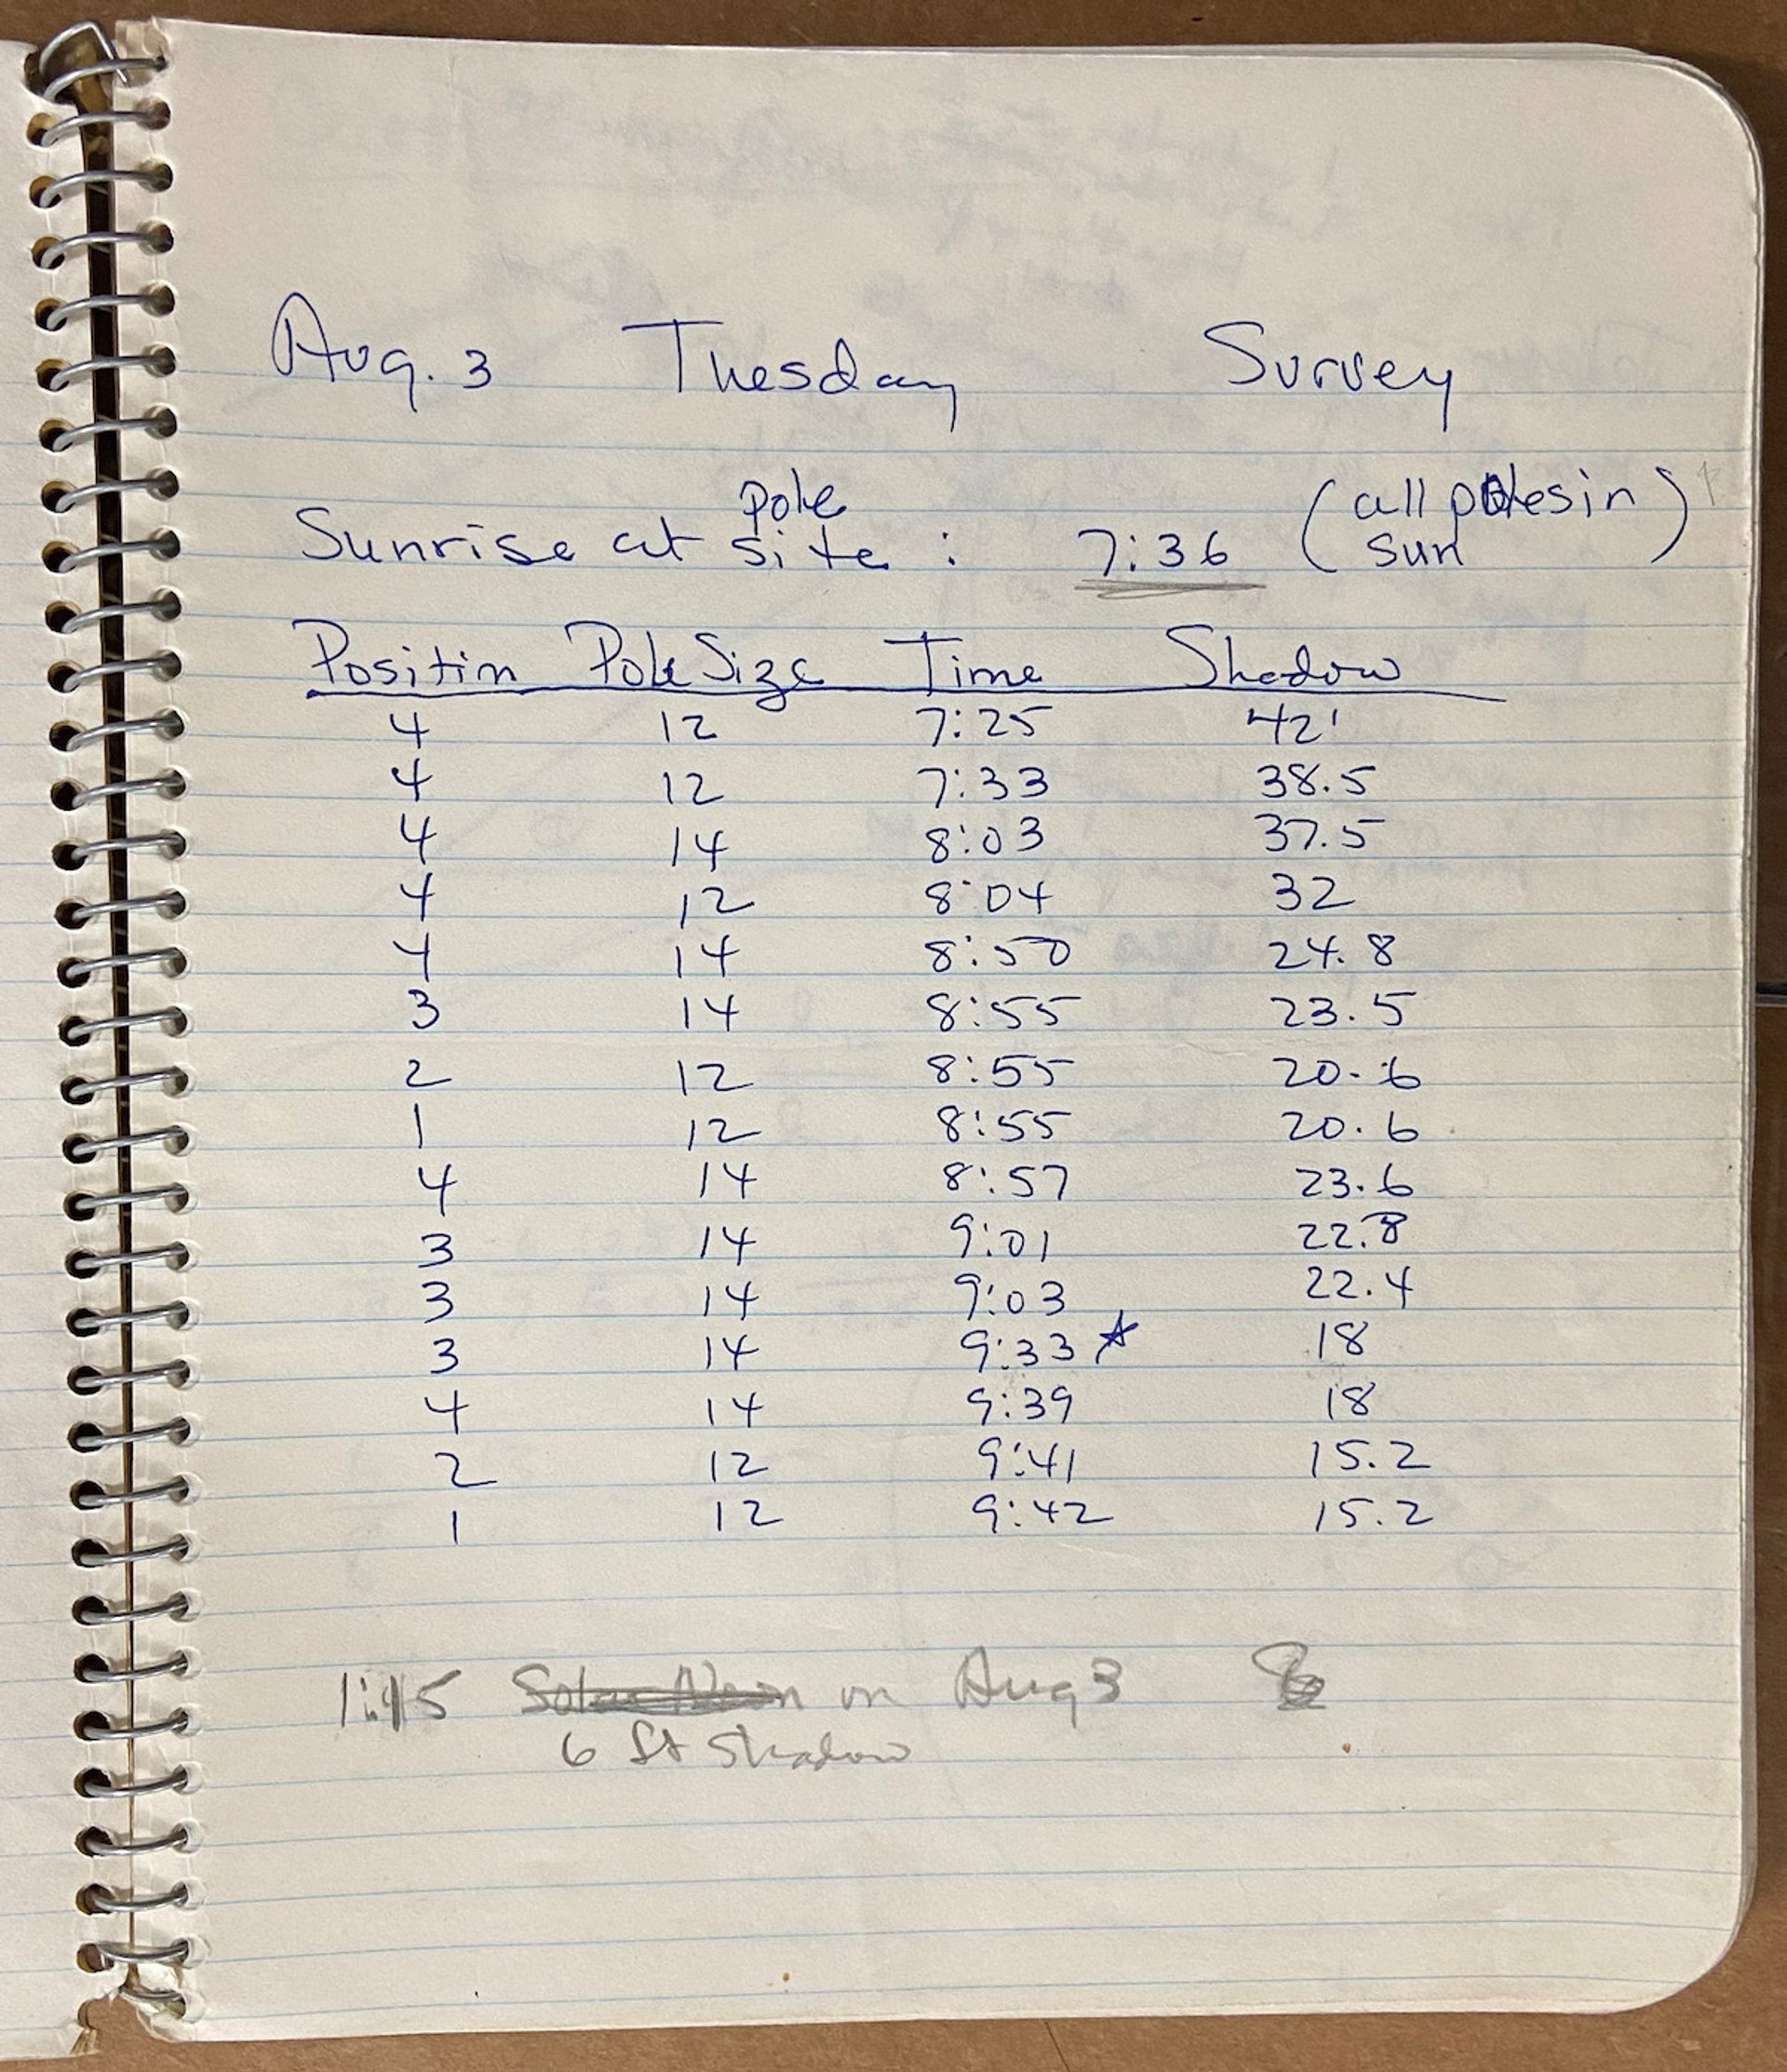 Aug. 3 Tuesday Survey
pole
Sunrise at site : 7:36 (all poles in sun)
Position Pole Size Time Shadow
4 12 7:25 42'
4 12 7:33 38.5
4 14 8:03 37.5
4 12 8:04 32
4 14 8:50 24.8
3 14 8:55 23.5
2 12 8:55 20.6
1 12 8:55 20.6
4 14 8:57 23.6
3 14 9:01 22.8
3 14 9:03 22.4
3 14 9:33 ☆ 18
4 14 9:39 18
2 12 9:41 15.2
1 12 9:42 15.2
Solar Noon on Aug 3
6 ft shadow